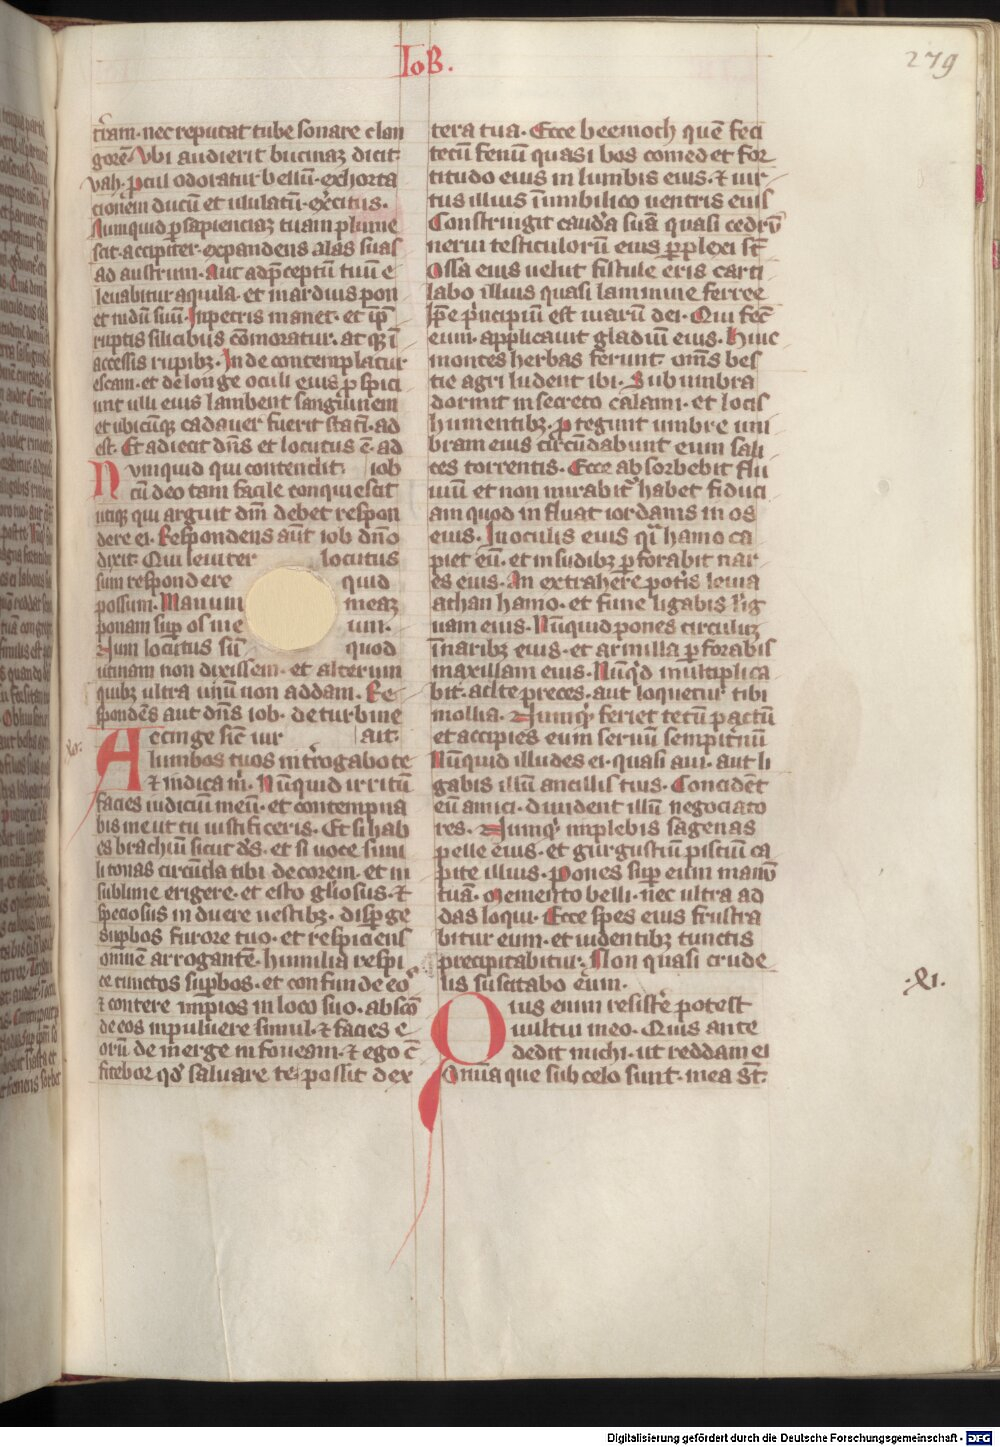 Iob.
279
terram· nec reputat tube sonare clan
gorē Vbi audierit bucinaȝ dicit·
vah· ꝓcul odoratur bellū· exhorta
cionem ducū et ululatū· exercitus·
Numquid ꝑ sapienciaȝ tuam plume
scit· accipiter· expandens alas suas
ad austrum· Aut ad p̄ceptū tuū e
leuabitur aquila· et in arduis pon
et nidū suū· In petris manet· et ip̄
ruptis silicibus cōmoratur· atqȝ ī
accessis rupibȝ· Inde contemplatur
escam· et de longe oculi eius ꝓspici
unt ulli eius lambent sanguinem
et ubicūqȝ cadauer fuerit statī· ad
est· Et adiecit dn̄s et locutus ē· ad
Numquid qui contendit· iob
cū deo tam facile conquiescit
utiqȝ qui arguit dm̄ debet respon
dere ei· Respondens aūt iob dn̄o
dixit· Qui leuiter locutus
sum respondere quid
possum· Manum meaȝ
ponam suꝑ os me um·
Vnum locutus sū quod
utinam non dixissem· et alterum
quibȝ ultra unū non addam· Re
spondēs aut dn̄s iob· de turbine
Accinge sic̄ uir ait·
lumbos tuos interrogabo te
⁊ indica m· Nūquid irritū
facies iudiciū meū· et contempna
bis me ut tu iustificeris· Et si hab
es brachiū sicut ds̄· et si uoce simi
li tonas circūda tibi decorem· et in
sublime erigere· et esto gliosus· ⁊
speciosus induere uestibȝ· dispge
supbos furore tuo· et respiciens
omnē arrogantē· humilia respi
ce cunctos supbos· et confunde eo
⁊ contere impios in loco suo· abscō
de eos in puluere simul· ⁊ facies e
orū demerge in foueam· ⁊ ego c̄
fitebor qd̄ saluare te· possit dex
tera tua· Ecce beemoth quē feci
tecū fenū quasi bos comedet for
titudo eius in lumbis eius· ⁊ uir
tus illius ī umbilico uentris eius
Constringit caudā suā quasi cedrū
nerui testiculorū eius ꝑplexi st̄
Ossa eius uelut fistule eris carti
labo illius quasi lammine ferree
Ip̄e principiū est uiarū dei· Qui fec̄
eum· applicauit gladiū eius· Huic
montes herbas ferunt· om̄s bes
tie agri ludent ibi· Sub umbra
dormit in secreto calami· et locis
humentibȝ· ꝓtegunt umbre um
bram eius circūdabunt eum sali
ces torrentis· Ecce absorbebit flu
uiū et non mirabit̄ habet fiduci
am quod influat iordanis in os
eius· In oculis eius qi hamo ca
piet eū· et in sudibȝ ꝑforabit nar
es eius· An extrahere potis leuia
athan hamo· et fune ligabis lig
uam eius· Nūquid pones circulū
ī naribȝ eius· et armilla ꝑforabis
maxillam eius· Nūqd multiplica
bit· ad te preces· aut loquetur tibi
mollia· Numqi feriet tecū pactū
et accipies eum seruū sempitnū
Nūquid illudes ei· quasi aui· aut li
gabis illū ancillis tuis· Concidēt
eū amici· diuident illū negociato
res· Numqi implebis sagenas
pelle eius· et gurgustiū pisciū ca
pite illius· Pones suꝑ eum manū
tuā· memento belli· nec ultra ad
das loqui· Ecce spes eius frustra
bitur eum· et uidentibȝ cunctis
precipitabitur· Non quasi crude
lis suscitabo eum·
Quis enim resistere potest
uultui meo· Quis ante
dedit michi· ut reddam ei
Omīa que sub celo sunt· mea st̄·
·xli·
Digitalisierung gefördert durch die Deutsche Forschungsgemeinschaft - DFG